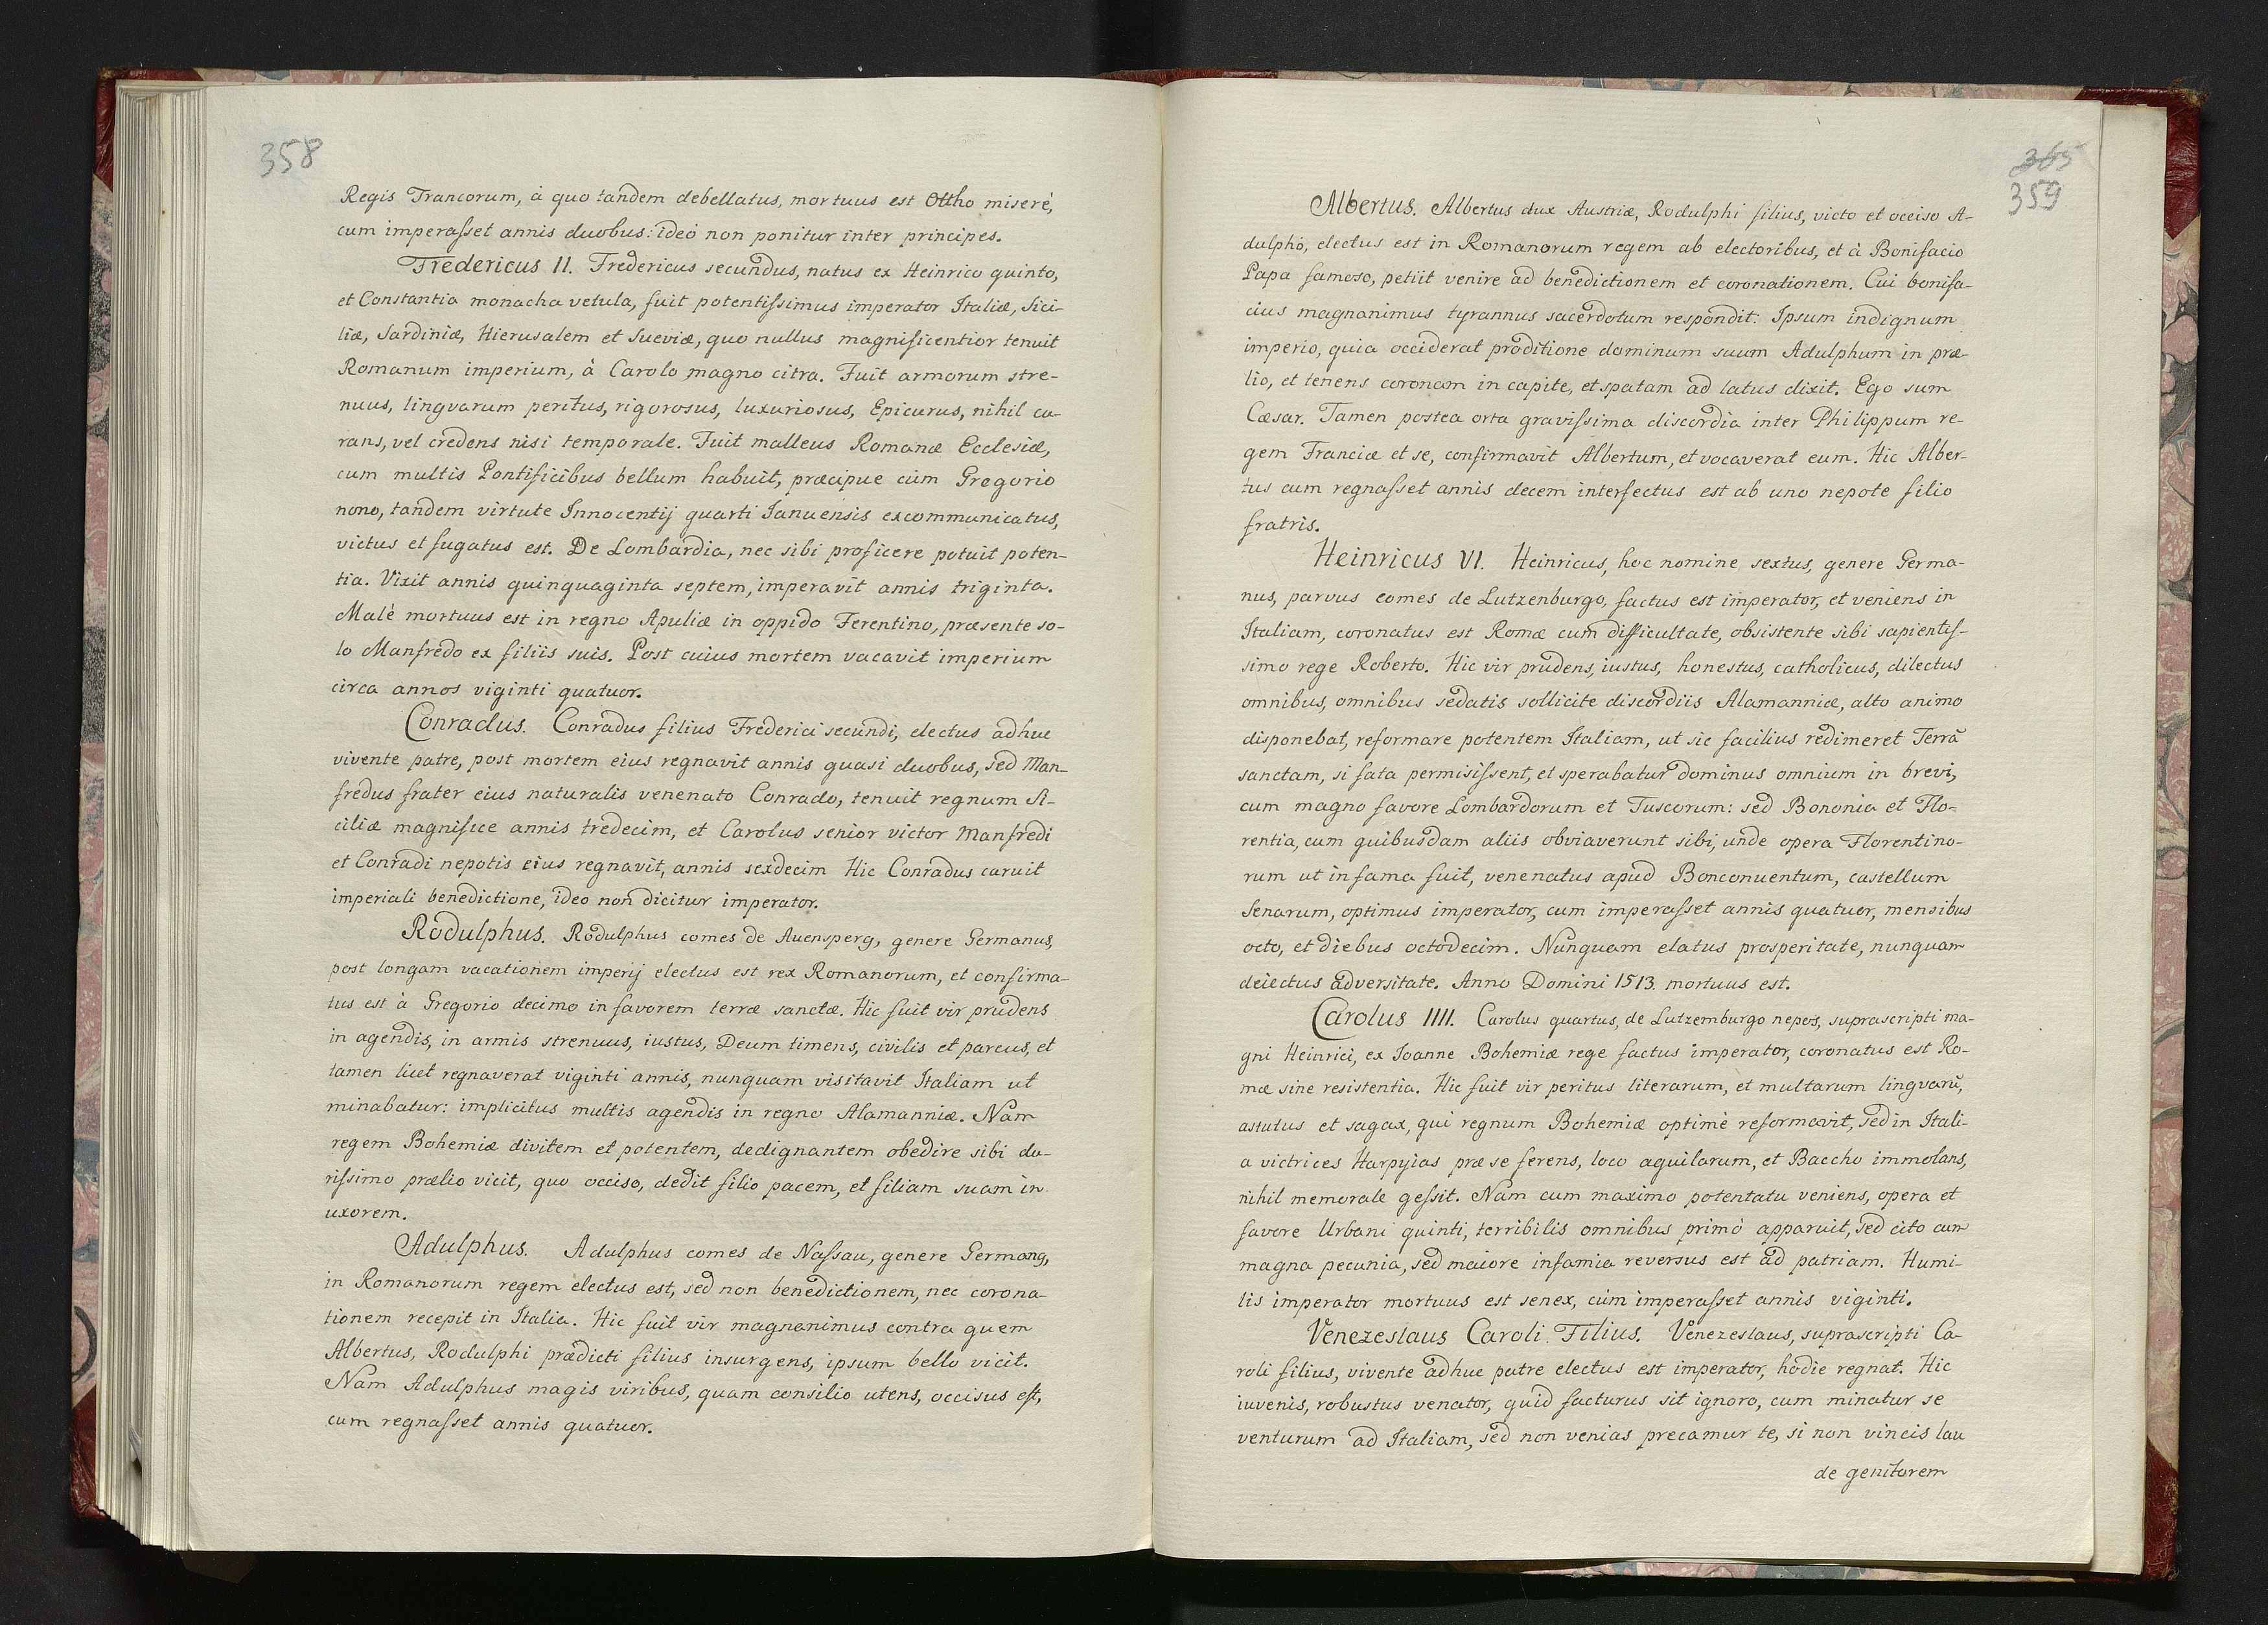 358
Regis Francorum, à quo tandem debellatus, mortuus est Ottho miserè,
cum imperasset annis duobus: ideò non ponitur inter principes.
Fredericus II. Fredericus secundus, natus ex Heinrico quinto,
et Constantia monacha vetula, fuit potentissimus imperator Italiæ, Sici-
liæ, Sardiniæ, Hierusalem et Sueviæ, quo nullus magnificentior tenuit
Romanum imperium, à Carolo magno citra. Fuit armorum stre-
nuus, lingvarum peritus, rigorosus, luxuriosus, Epicurus, nihil cu-
rans, vel credens nisi temporale. Fuit malleus Romanæ Ecclesiæ,
cum multis Pontificibus bellum habuit, præcipue cùm Gregorio
nono, tandem virtute Innocentij quarti Ianuensis excommunicatus,
victus et fugatus est. De Lombardia, nec sibi proficere potuit poten-
tia. Vixit annis quinquaginta septem, imperavit annis triginta.
Malè mortuus est in regno Apuliæ in oppido Ferentino, præsente so-
lo Manfredo ex filiis suis. Post cuius mortem vacavit imperium
circa annos viginti quatuor.
Conradus. Conradus filius Frederici secundi, electus adhuc
vivente patre, post mortem eius regnavit annis quasi duobus, sed Man-
fredus frater eius naturalis venenato Conrado, tenuit regnum Si-
ciliæ magnifice annis tredecim, et Carolus senior victor Manfredi
et Conradi nepotis eius regnavit, annis sexdecim Hic Conradus caruit
imperiali benedictione, ideo non dicitur imperator.
Rodulphus. Rodulphus comes de Auensperg, genere Germanus,
post longam vacationem imperij electus est rex Romanorum, et confirma-
tus est à Gregorio decimo in favorem terræ sanctæ. Hic fuit vir prudens
in agendis, in armis strenuus, iustus, Deum timens, civilis et parcus, et
tamen licet regnaverat viginti annis, nunquam visitavit Italiam ut
minabatur: implicitus multis agendis in regno Alamanniæ. Nam
regem Bohemiæ divitem et potentem, dedignantem obedire sibi du-
rissimo prælio vicit, quo occiso, dedit filio pacem, et filiam suam in
uxorem.
Adulphus. Adulphus comes de Nassau, genere Germanq,
in Romanorum regem electus est, sed non benedictionem, nec corona-
tionem recepit in Italia. Hic fuit vir magnanimus contra quem
Albertus, Rodulphi prædicti filius insurgens, ipsum bello vicit.
Nam Adulphus magis viribus, quam consilio utens, occisus est,
cum regnasset annis quatuor.
365
359
Albertus. Albertus dux Austriæ, Rodulphi filius, victo et occiso A-
dulpho, electus est in Romanorum regem ab electoribus, et à Bonifacio
Papa famoso, petiit venire ad benedictionem et coronationem. Cui bonifa-
cius magnanimus tyrannus sacerdotum respondit: Ipsum indignum
imperio, quia occiderat proditione dominum suum Adulphum in præ-
lio, et tenens coronam in capite, et spatam ad latus dixit. Ego sum
Cæsar. Tamen postea orta gravissima discordia inter Philippum re-
gem Franciæ et se, confirmavit Albertum, et vocaverat eum. Hic Alber-
tus cum regnasset annis decem interfectus est ab uno nepote filio
fratris.
Heinricus VI. Heinricus, hoc nomine sextus, genere Germa-
nus, parvus comes de Lutzenburgo, factus est imperator, et veniens in
Italiam, coronatus est Romæ cum difficultate, obsistente sibi sapientis-
simo rege Roberto. Hic vir prudens, iustus, honestus, catholicus, dilectus
omnibus, omnibus sedatis sollicite discordiis Alamanniæ, alto animo
disponebat, reformare potentem Italiam, ut sic facilius redimeret Terrã
sanctam, si fata permisissent, et sperabatur dominus omnium in brevi,
cum magno favore Lombardorum et Tuscorum: sed Bononia et Flo-
rentia, cum quibusdam aliis obviaverunt sibi, unde opera Florentino-
rum ut infama fuit, venenatus apud Bonconuentum, castellum
Senarum, optimus imperator, cum imperasset annis quatuor, mensibus
octo, et diebus octodecim. Nunquam elatus prosperitate, nunquam
deiectus adversitate. Anno Domini 1513. mortuus est.
Carolus IIII. Carolus quartus, de Lutzemburgo nepos, suprascripti ma-
gni Heinrici, ex Ioanne Bohemiæ rege factus imperator, coronatus est Ro-
mæ sine resistentia. Hic fuit vir peritus literarum, et multarum lingvarũ,
astutus et sagax, qui regnum Bohemiæ optimè reformavit, sed in Itali-
a victrices Harpyias præ se ferens, loco aquilarum, et Baccho immolans,
nihil memorale gessit. Nam cum maximo potentatu veniens, opera et
favore Urbani quinti, terribilis omnibus primò apparuit, sed cito cum
magna pecunia, sed maiore infamia reversus est ad patriam. Humi-
lis imperator mortuus est senex, cùm imperasset annis viginti.
Venezeslaus Caroli Filius. Venezeslaus, suprascripti Ca-
roli filius, vivente adhuc patre electus est imperator, hodie regnat. Hic
iuvenis, robustus venator, quid facturus sit ignoro, cum minatur se
venturum ad Italiam, sed non venias precamur te, si non vincis lau
de genitorem